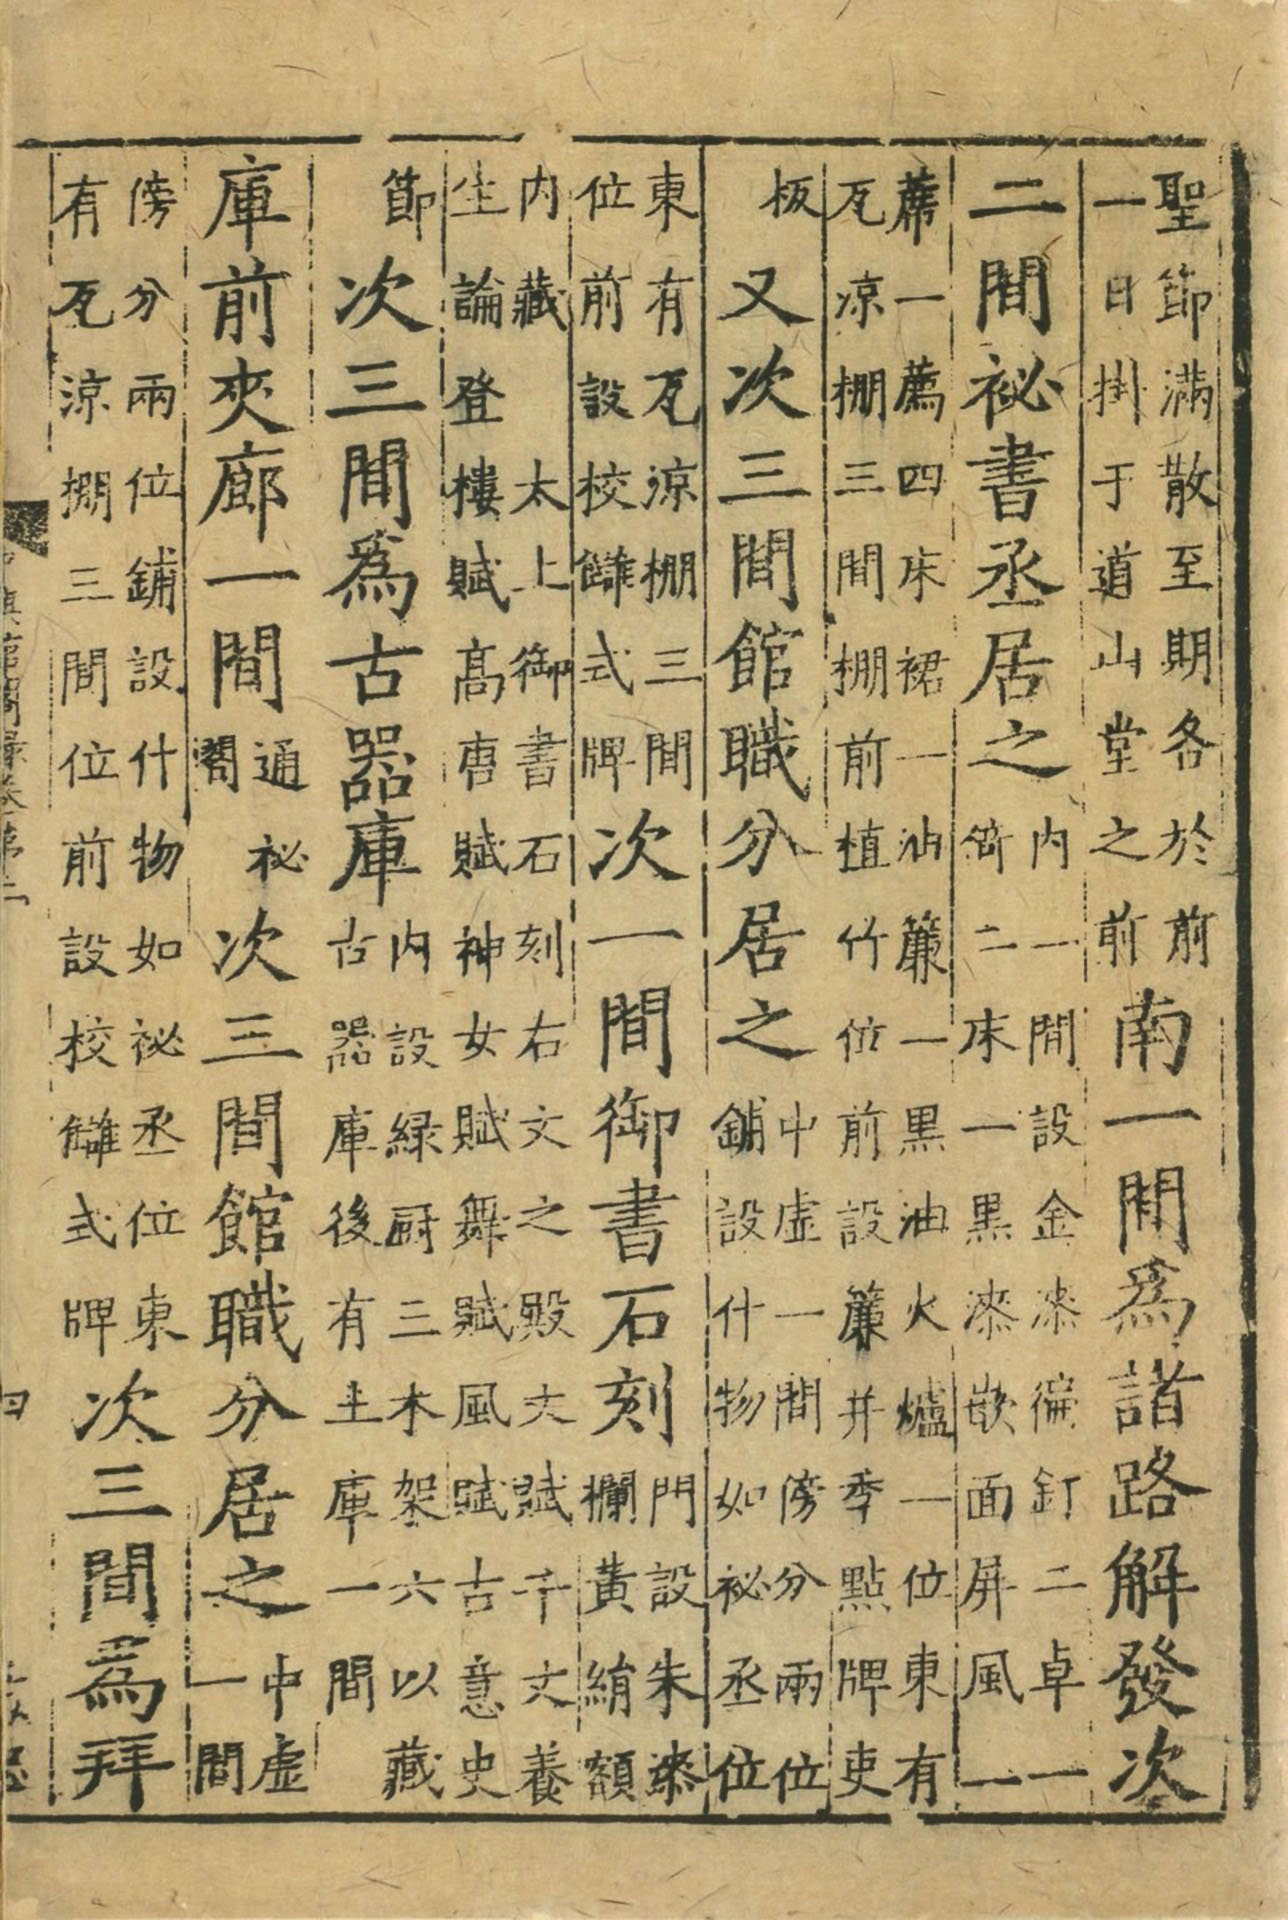 聖節滿散至期各於前一日掛于道山堂之前南一閒爲諸路解發次
二閒祕書丞居之内一閒設金漆徧釘二卓一倚二床一黒漆嵌面屏風一
蓆一薦四床裙一油簾一黒油火爐一位東有瓦涼棚三閒棚前植竹位前設簾并季點牌吏
板又次三閒館職分居之中虛一閒傍分兩位鋪設什物如祕丞位
東有瓦涼棚三閒位前設校讎式牌次一閒御書石刻門設朱漆欄黄絹額
内藏太上御書石刻右文之殿文賦千文養生論登樓賦髙唐賦神女賦舞賦風賦古意史
節次三閒爲古器庫内設緑厨三木架六以藏古器庫後有土庫一閒
庫前夾廊一閒通祕閣次三閒館職分居之中虛一閒
傍分兩位鋪設什物如祕丞位東有瓦涼棚三閒位前設校讎式牌次三閒爲拜